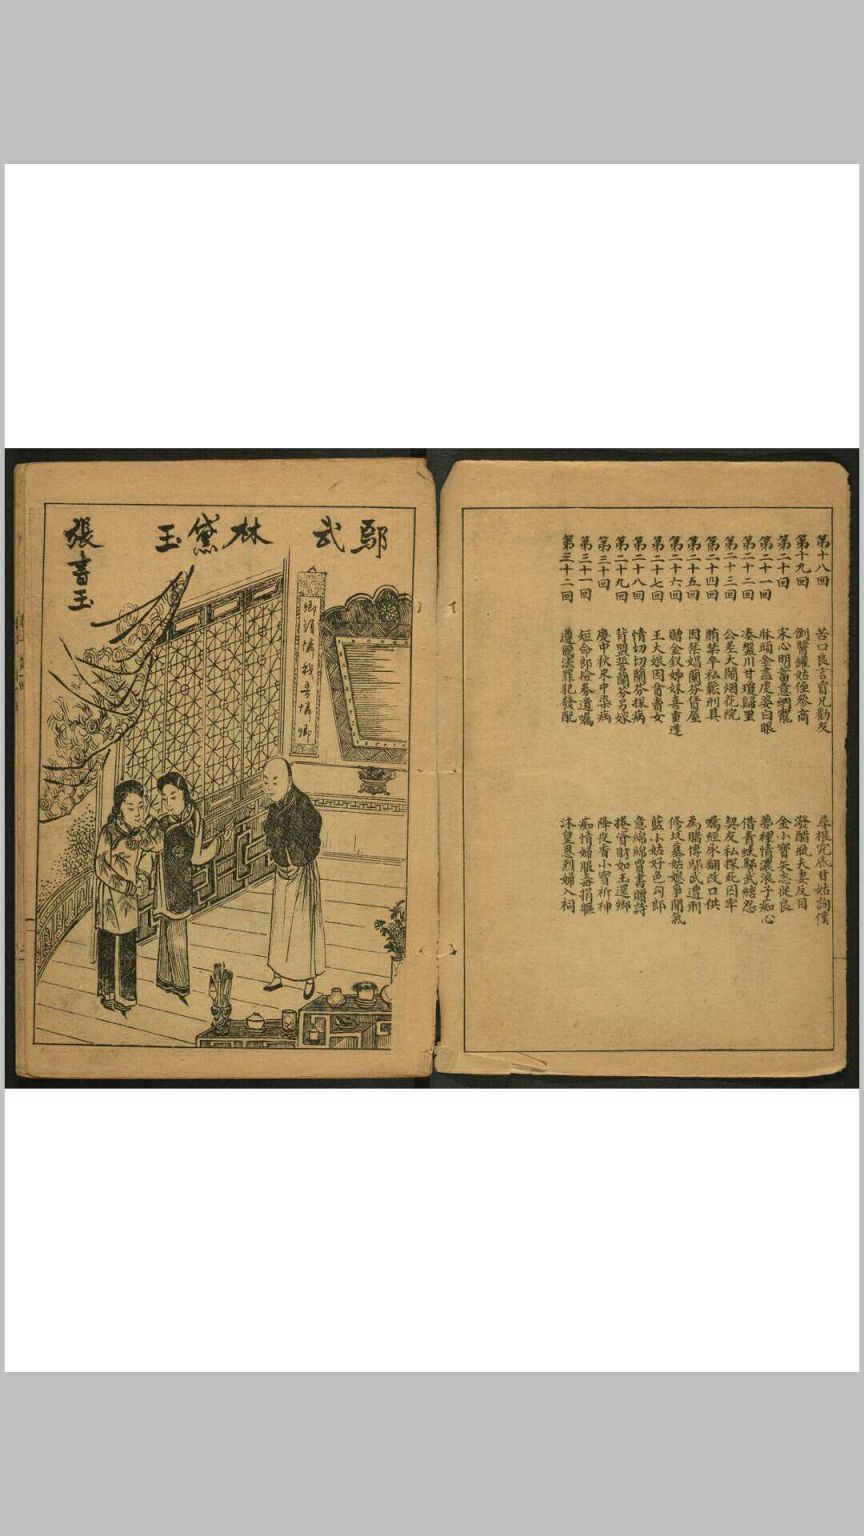 第十八回 苦口良言賈兄勸友 尋根究底甘姑詢僕
第十九回 倒醫罐姑侄參商 潑醋瓶夫妻反目
第二十回 宋心明蓄意納寵 金小寶矢志從良
第二十一回 牀頭金盡虔婆白眼 夢裡情濃浪子痴心
第二十二回 湊盤川甘瓊歸里 借青蚨鄔武結怨
第二十三回 公差大鬧烟花院 契友私探死囚牢
第二十四回 賄禁卒私鬆刑具 囑經承翻改口供
第二十五回 因禁娼蘭芬賃屋 為賭博鄔武遭刑
第二十六回 贈金釵姊妹喜重逢 修坟墓姑嫂爭閒氣
第二十七回 王大娘因貧賣女 藍小姑好色勾郎
第二十八回 情切切蘭芬探病 意綿綿曾書贈詩
第二十九回 背盟誓蘭芬另嫁 捲資財如玉還鄉
第三十回 慶中秋宋中染病 降夜香小寶祈神
第三十一回 短命郎臨危遺囑 痴情婦服毒捐軀
第三十二回 遵憲法罪犯發配 沐皇恩烈婦入祠
鄔武
林黛玉
張書玉
卿須憐我我憐卿